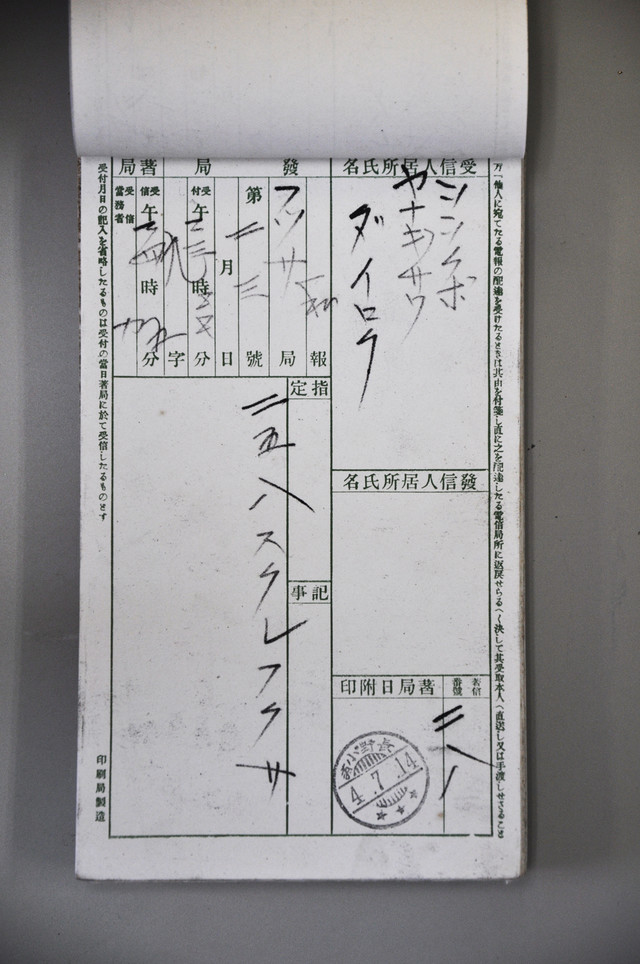 万一他人に宛てたる電報の配達を受けたるときは其由を付箋し直に之を配達したる電信局所に返戻せらるへく決して其受取本人へ直送し又は手渡しせさること
受信人居所氏名
シンクボ
ヤナキサワ
ダイロク
發信人居所氏名
著信番號
二八一
著局日附印
4.7.14
發局
報
フツサ局
第二三號
月日
受付午
時分
字
著局
受信午
時分
受信當務者
指定
記事
二五ハスクレフクサ
受付月日の記入を省略したるものは受付の當日著局に於て受信したるものとす
印刷局製造